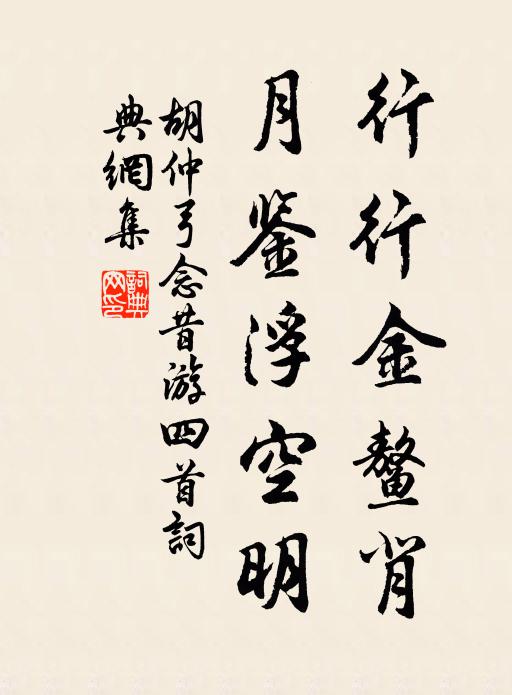 行行金鳌背
月鉴浮空明
胡仲弓念昔游四首詞
典網集
詞典網印